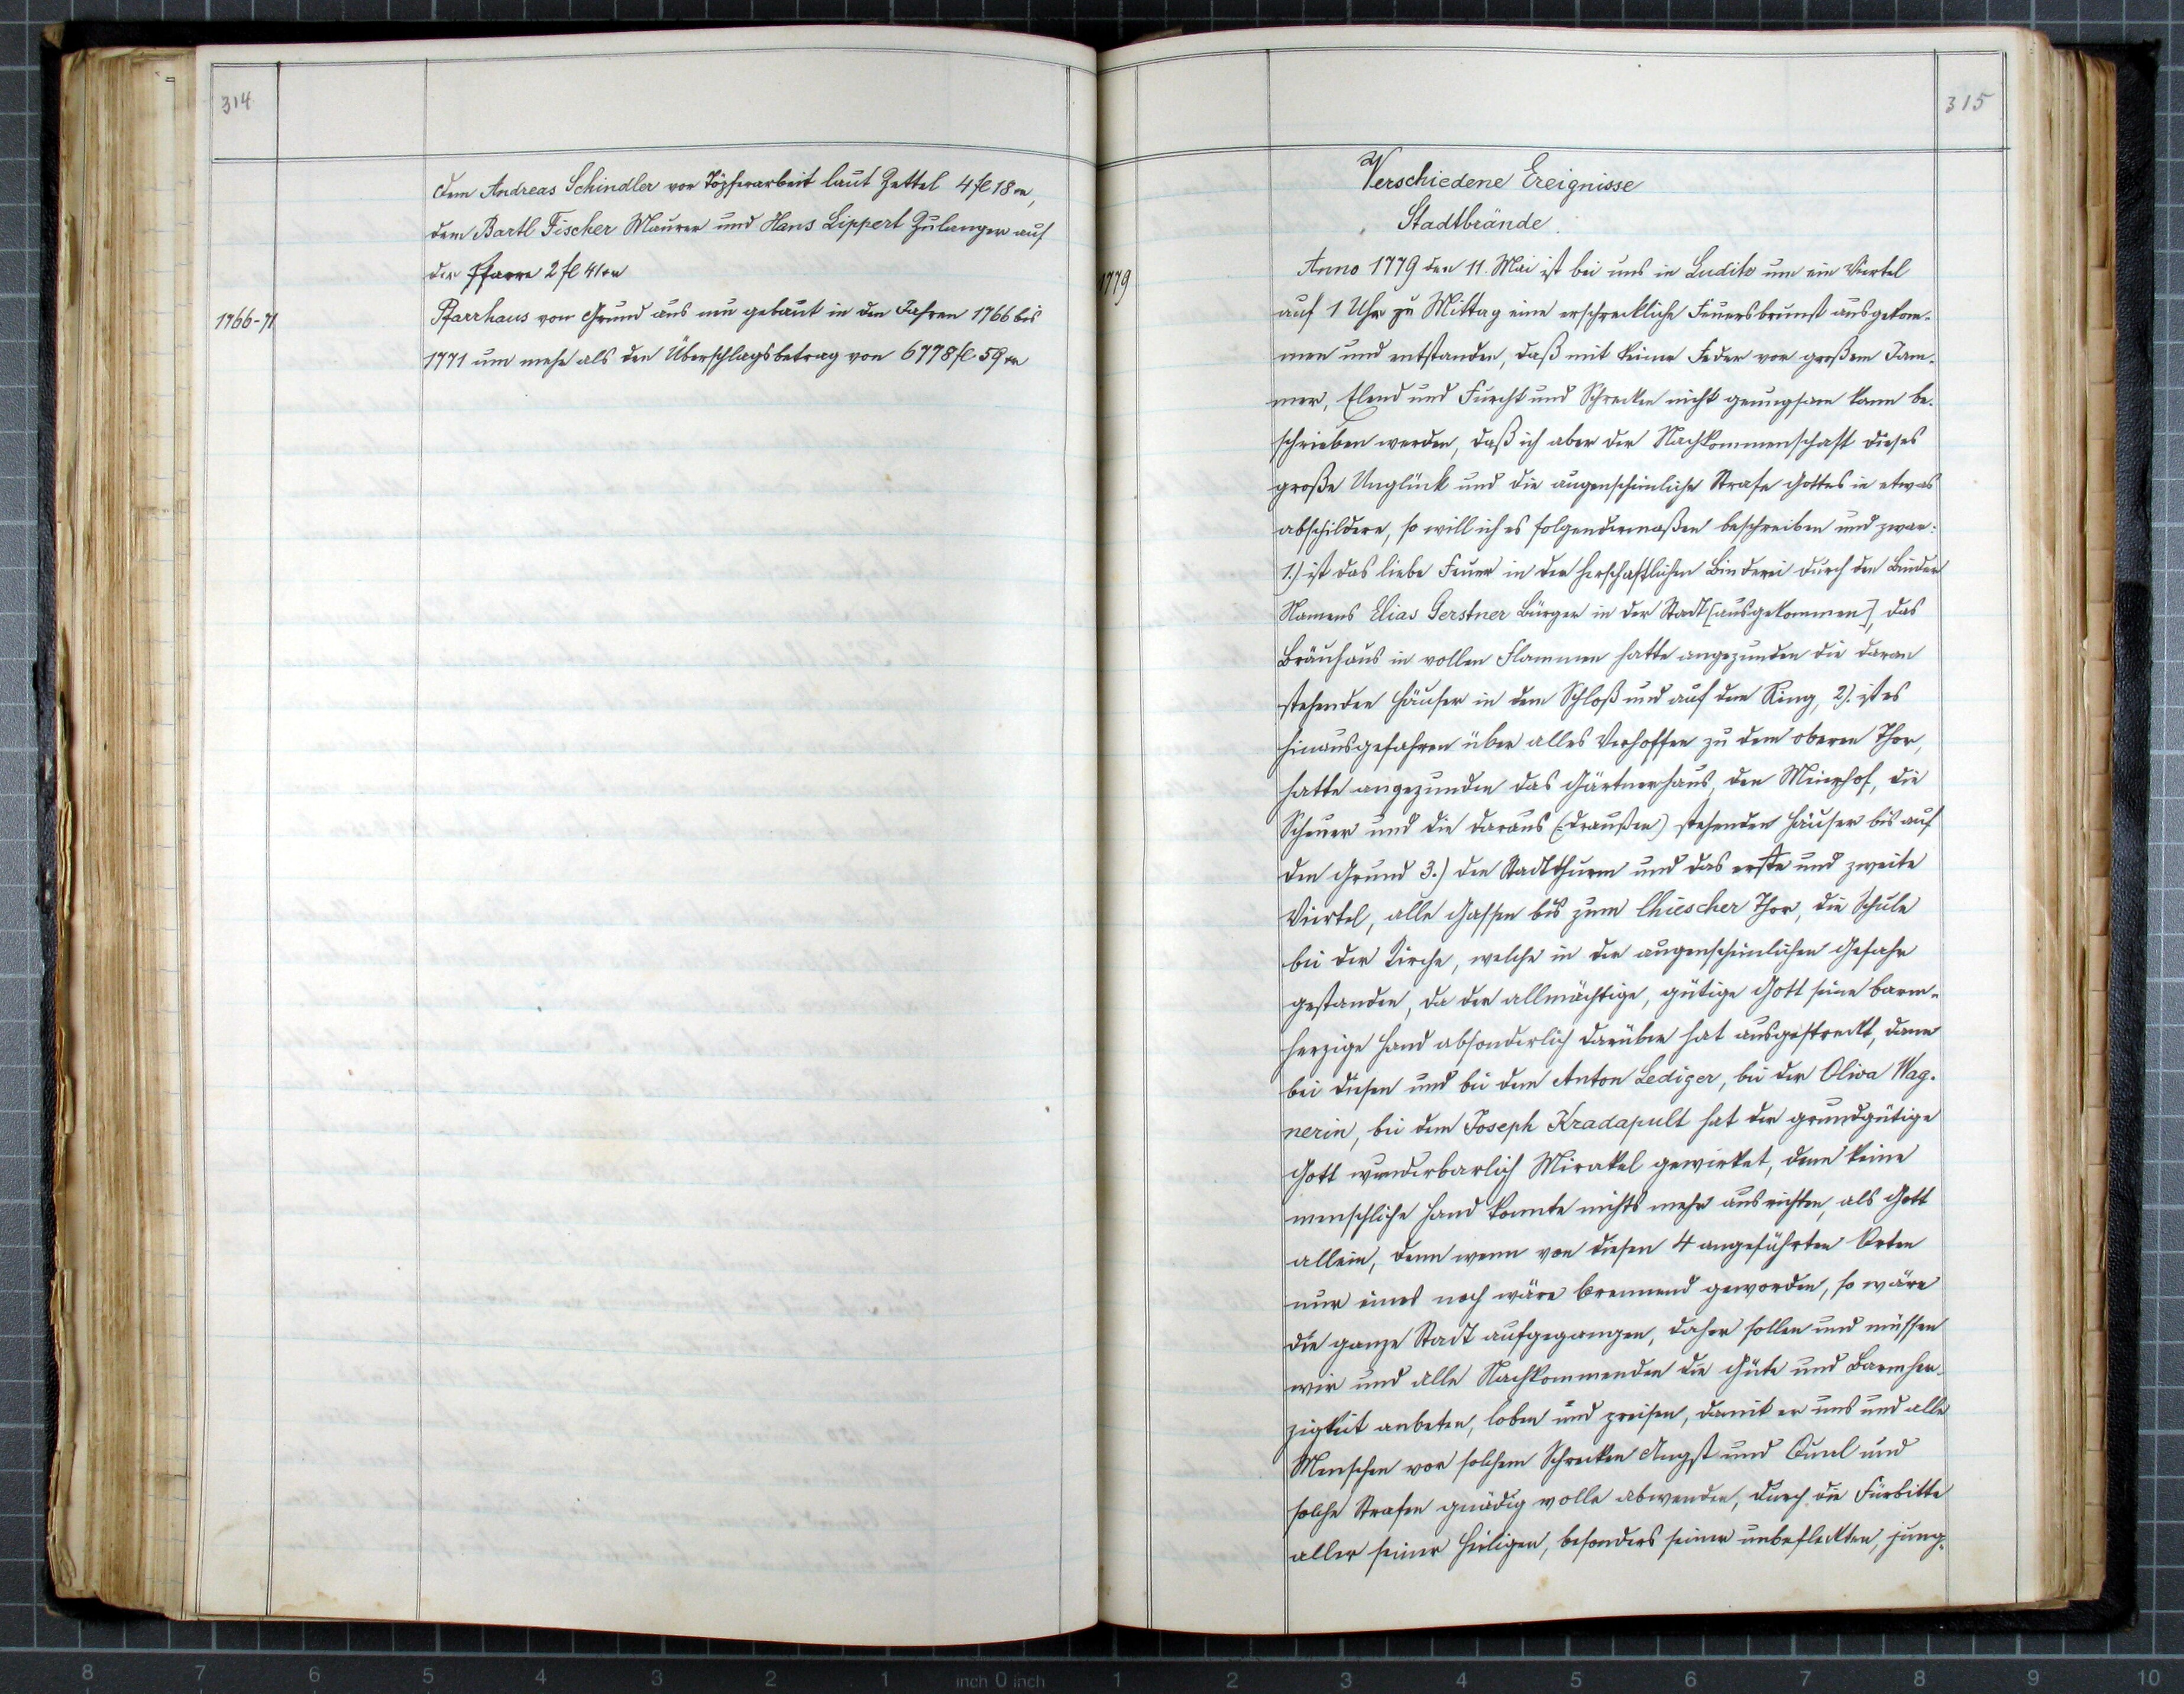 314
dem Andreas Schindler von Töpferarbeit laut Zettel 4 fl 18 xr,
dem Bartl Fischer Maurer und Hans Lippert Zulanger auf
der Pfarre 2 fl 41 xr
1766-71
Pfarrhaus vom Grund aus neu gebaut in den Jahren 1766 bis
1771 um mehr als den Überschlagsbetrag von 6778 fl 59 xr
315
Verschiedene Ereignisse
Stadtbrände.
1779
Anno 1779 den 11. Mai ist bei uns in Luditz um ein Viertel
auf 1 Uhr zu Mittag eine erschreckliche Feuersbrunst ausgekom-
men und entstanden, daß mit keiner Feder vor großem Jam-
mer, Elend und Furcht und Schrecken nicht genugsam kann be-
schrieben werden, daß ich aber der Nachkommenschaft dieses
große Unglück und die augenscheinliche Strafe Gottes in etwas
abschildere, so will ich es folgendermaßen beschreiben und zwar:
1.) ist das liebe Feuer in der herschaftlichen Binderei durch den Binder
Namens Elias Gerstner Bürger in der Stadt [ausgekommen], das
Bräuhaus in vollen Flammen hatte angezunden die daran
stehenden Häuser in dem Schloß und auf dem Ring, 2). ist es
hinausgefahren über alles Verhoffen zu dem oberen Thor,
hatte angezunden das Gärtnerhaus, den Meierhof, die
Scheuer und die daraus (=draußen) stehenden Häuser bis auf
den Grund 3.) den Stadtthurm und das erste und zweite
Viertel, alle Gassen bis zum Chiescher Thor, die Schule
bei der Kirche, welche in der augenscheinlichen Gefahr
gestanden, da der allmächtige, gütige Gott seine barm-
herzige Hand absonderlich darüber hat ausgestreckt, dann
bei diesen und bei dem Anton Lediger, bei der Oliva Wag-
nerin, bei dem Joseph Kradapult hat der grundgütige
Gott wunderbarlich Mirakel gewirket, denn keine
menschliche Hand konnte nichts mehr ausrichten, als Gott
allein, denn wenn von diesen 4 angeführten Orten
nur eines noch wäre brennend geworden, so wäre
die ganze Stadt aufgegangen, daher sollen und müssen
wir und alle Nachkommenden die Güte und Barmher-
zigkeit anbeten, loben und preisen, damit er uns und alle
Menschen vor solchem Schrecken Angst und Qual und
solche Strafen gnädig wolle abwenden, durch die Fürbitte
aller seiner Heiligen, besonders seiner unbefleckten, jung-
8 7 6 5 4 3 2 1 inch 0 inch 1 2 3 4 5 6 7 8 9 10